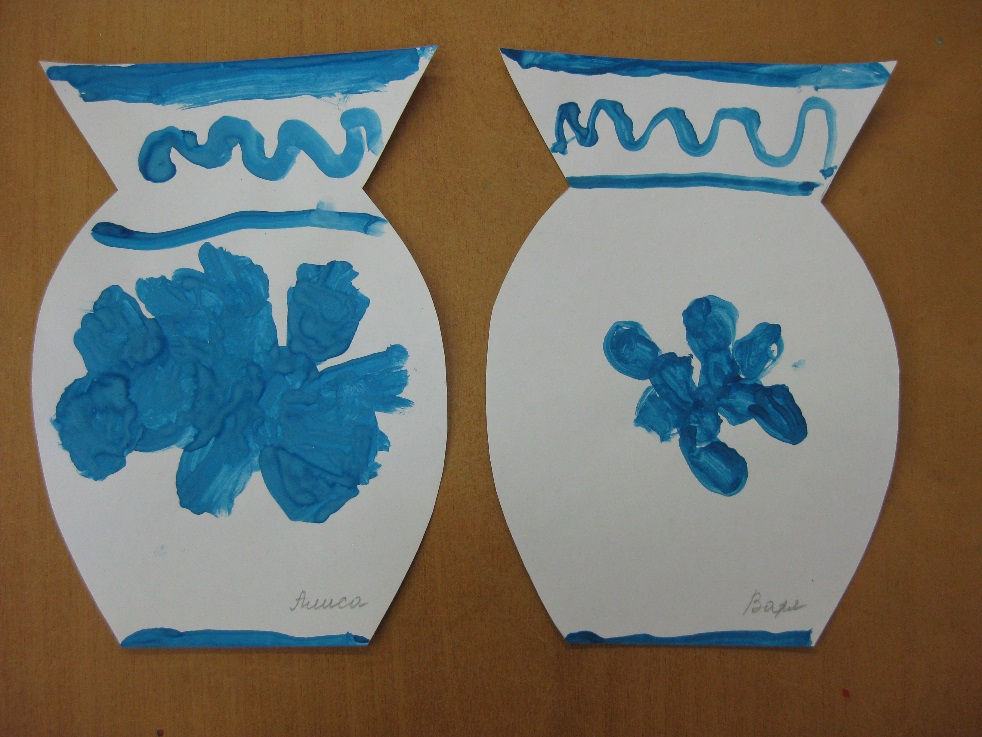 Алиса
Варя